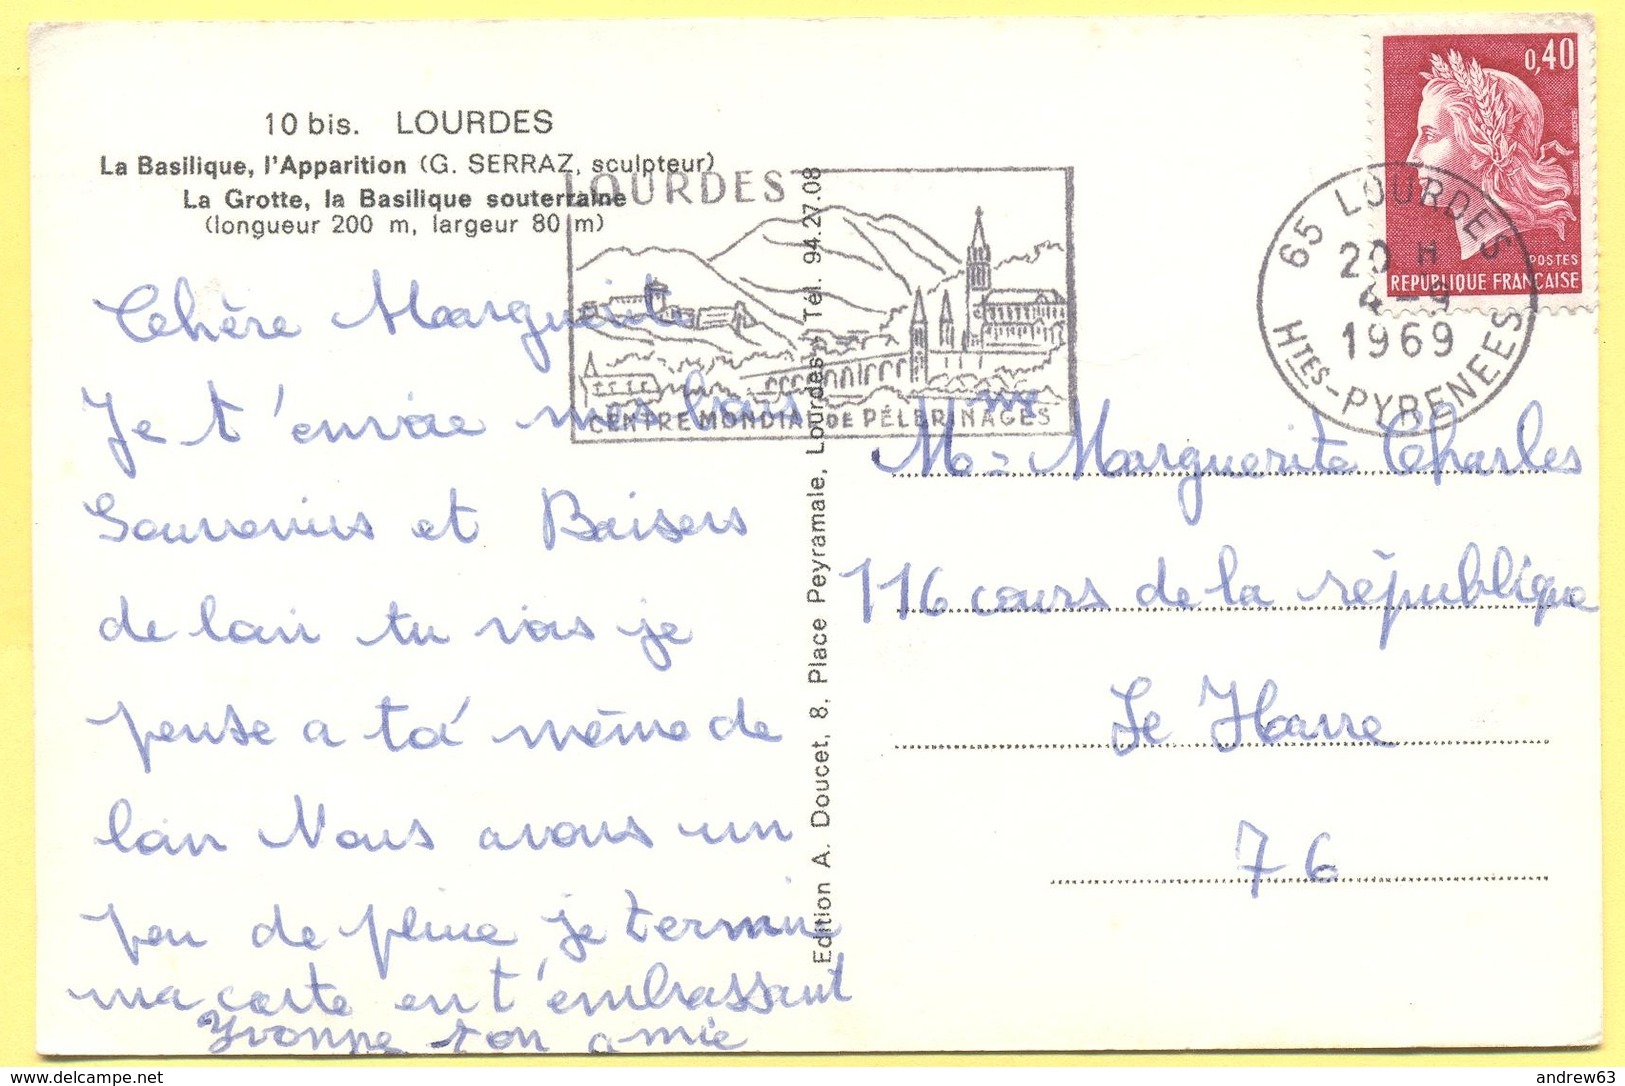 10 bis. LOURDES
La Basilique, l'Apparition (G. SERRAZ, sculpteur)
La Grotte, la Basilique souterraine
(longueur 200 m, largeur 80 m)
LOURDES
CENTRE MONDIAL DE PÉLERINAGES
0,40
POSTES
REPUBLIQUE FRANÇAISE
65 LOURDES
20 H
4-9
1969
HTES-PYRENEES
Chère Marguerite
Je t'envoie mes bons
Souvenirs et Baisers
de loin tu vois je
pense a toi même de
loin Nous avons un
peu de pluie je termine
ma carte en t'embrassant
Yvonne ton amie
Edition A. Doucet, 8, Place Peyramale, Lourdes - Tél. 94.27.08
Me = Marguerite Charles
116 cours de la république
Le Havre
76
http://www.delcampe.net
andrew63